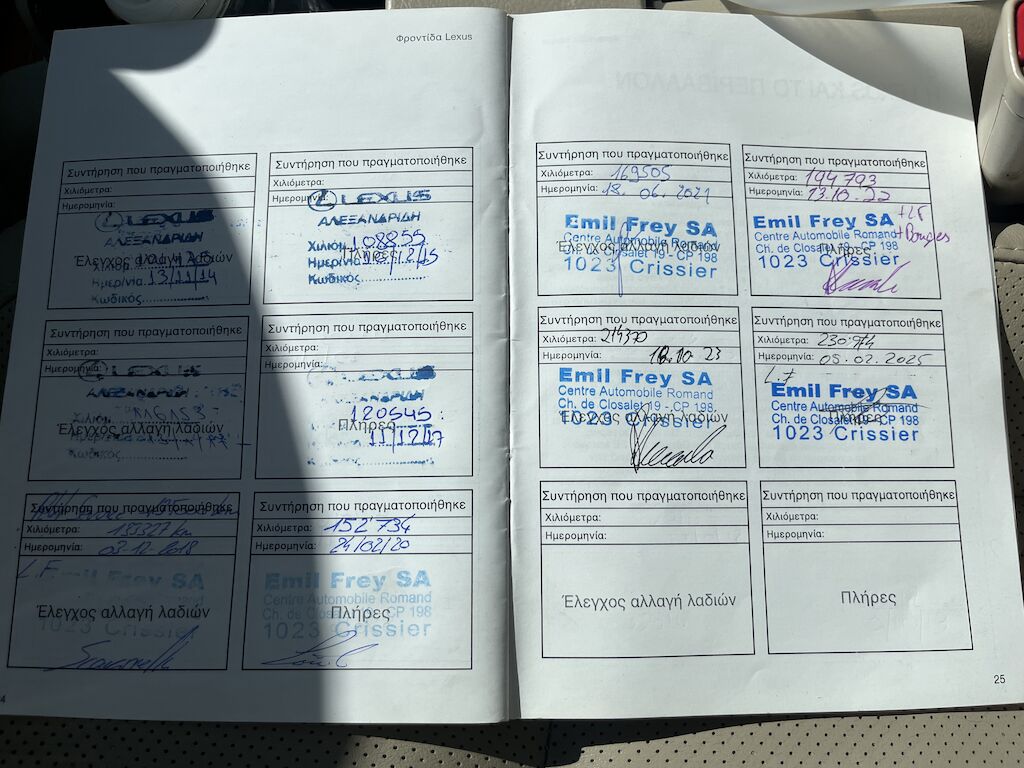 Φροντίδα Lexus
Συντήρηση που πραγματοποιήθηκε
Χιλιόμετρα:
Ημερομηνία:
LEXUS
ΑΛΕΞΑΝΔΡΙΔΗ
Έλεγχος αλλαγή λαδιών
Χιλιομ.
Ημερ/νια 13/11/14
Κωδικός
Συντήρηση που πραγματοποιήθηκε
Χιλιόμετρα:
Ημερομηνία:
LEXUS
ΑΛΕΞΑΝΔΡΙΔΗ
Χιλιομ. 108855
Πλήρες
Ημερ/νια
Κωδικός
Συντήρηση που πραγματοποιήθηκε
Χιλιόμετρα:
Ημερομηνία:
LEXUS
ΑΛΕΞΑΝΔΡΙΔΗ
Χιλιομ.
Έλεγχος αλλαγή λαδιών
Κωδικός
Συντήρηση που πραγματοποιήθηκε
Χιλιόμετρα:
Ημερομηνία:
LEXUS
120545
Πλήρες
11/12/17
Συντήρηση που πραγματοποιήθηκε
Χιλιόμετρα: 135327 km
Ημερομηνία: 03.12.2018
L.F
Emil Frey SA
Centre Automobile Romand
Έλεγχος αλλαγή λαδιών
1023 Crissier
Συντήρηση που πραγματοποιήθηκε
Χιλιόμετρα: 152'734
Ημερομηνία: 24/02/20
Emil Frey SA
Centre Automobile Romand
Ch. de Closalet 19 - CP 198
Πλήρες
1023 Crissier
Συντήρηση που πραγματοποιήθηκε
Χιλιόμετρα: 169505
Ημερομηνία: 18.06.2021
Emil Frey SA
Centre Automobile Romand
Έλεγχος αλλαγή λαδιών
Ch. de Closalet 19 - CP 198
1023 Crissier
Συντήρηση που πραγματοποιήθηκε
Χιλιόμετρα: 194793
Ημερομηνία: 13.10.22
+ LF
+ Bougies
Emil Frey SA
Centre Automobile Romand
Ch. de Closalet 19 - CP 198
Πλήρες
1023 Crissier
Συντήρηση που πραγματοποιήθηκε
Χιλιόμετρα: 214370
Ημερομηνία: 18.10 23
Emil Frey SA
Centre Automobile Romand
Ch. de Closalet 19 - CP 198
Έλεγχος αλλαγή λαδιών
1023 Crissier
Συντήρηση που πραγματοποιήθηκε
Χιλιόμετρα: 230.974
Ημερομηνία: 05.02.2025
L.F
Emil Frey SA
Centre Automobile Romand
Ch. de Closalet 19 - CP 198
Πλήρες
1023 Crissier
Συντήρηση που πραγματοποιήθηκε
Χιλιόμετρα:
Ημερομηνία:
Έλεγχος αλλαγή λαδιών
Συντήρηση που πραγματοποιήθηκε
Χιλιόμετρα:
Ημερομηνία:
Πλήρες
25